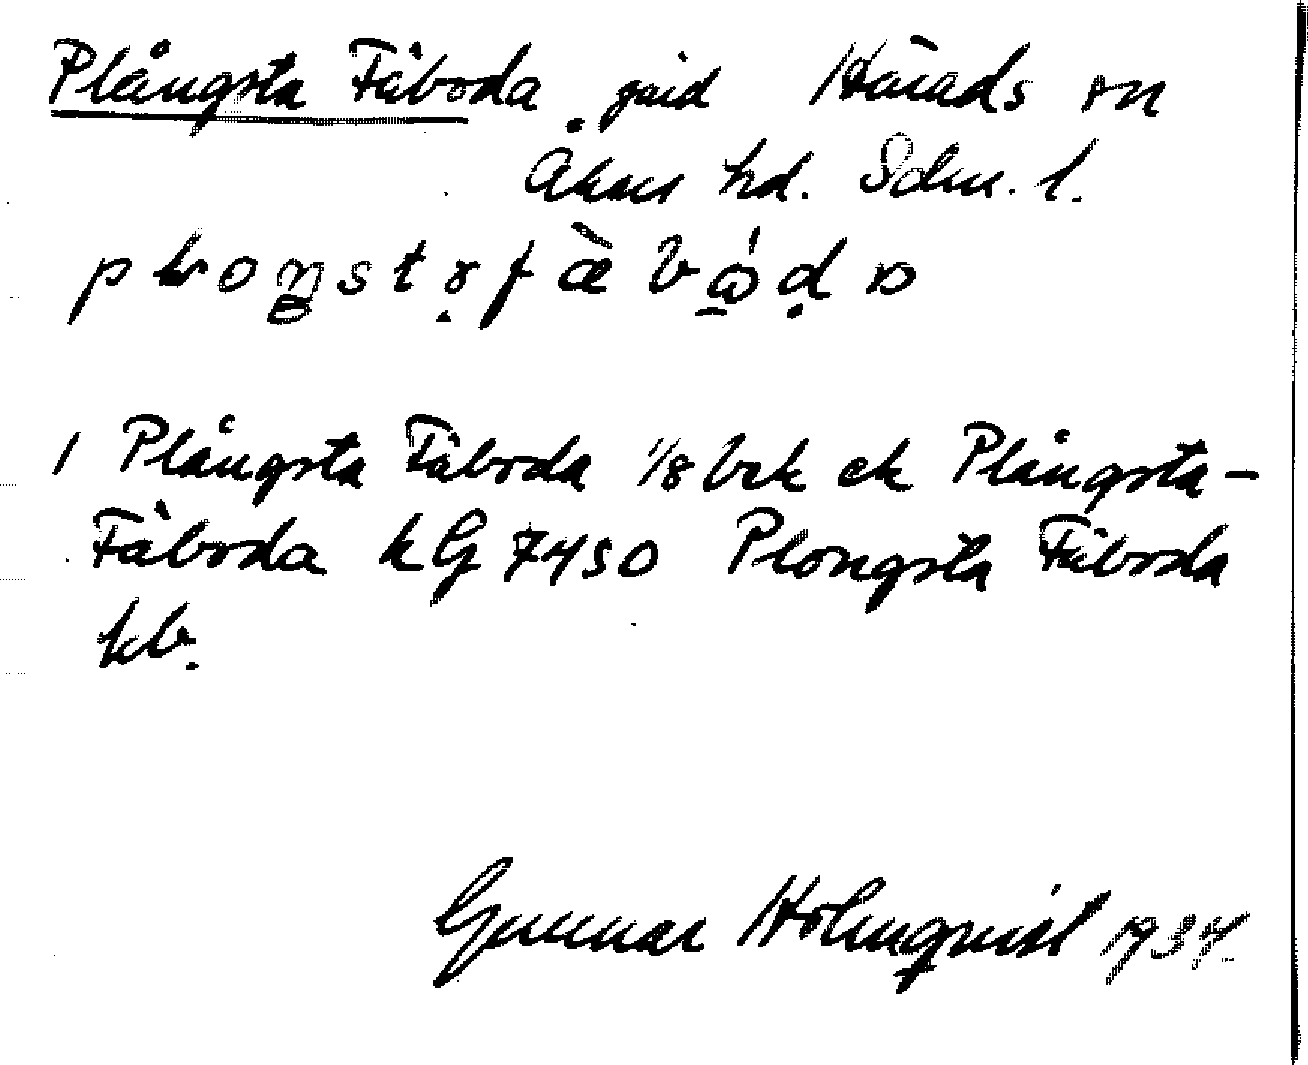 Plångsta Fäboda gård Härads sn
Åkers hd. Sdm. l.
1 Plångsta Fäboda 1/8 bck ek Plångsta-
Fäboda kG 7450 Plongsta Fäboda
kb.
Gunnar Holmquist 1934.